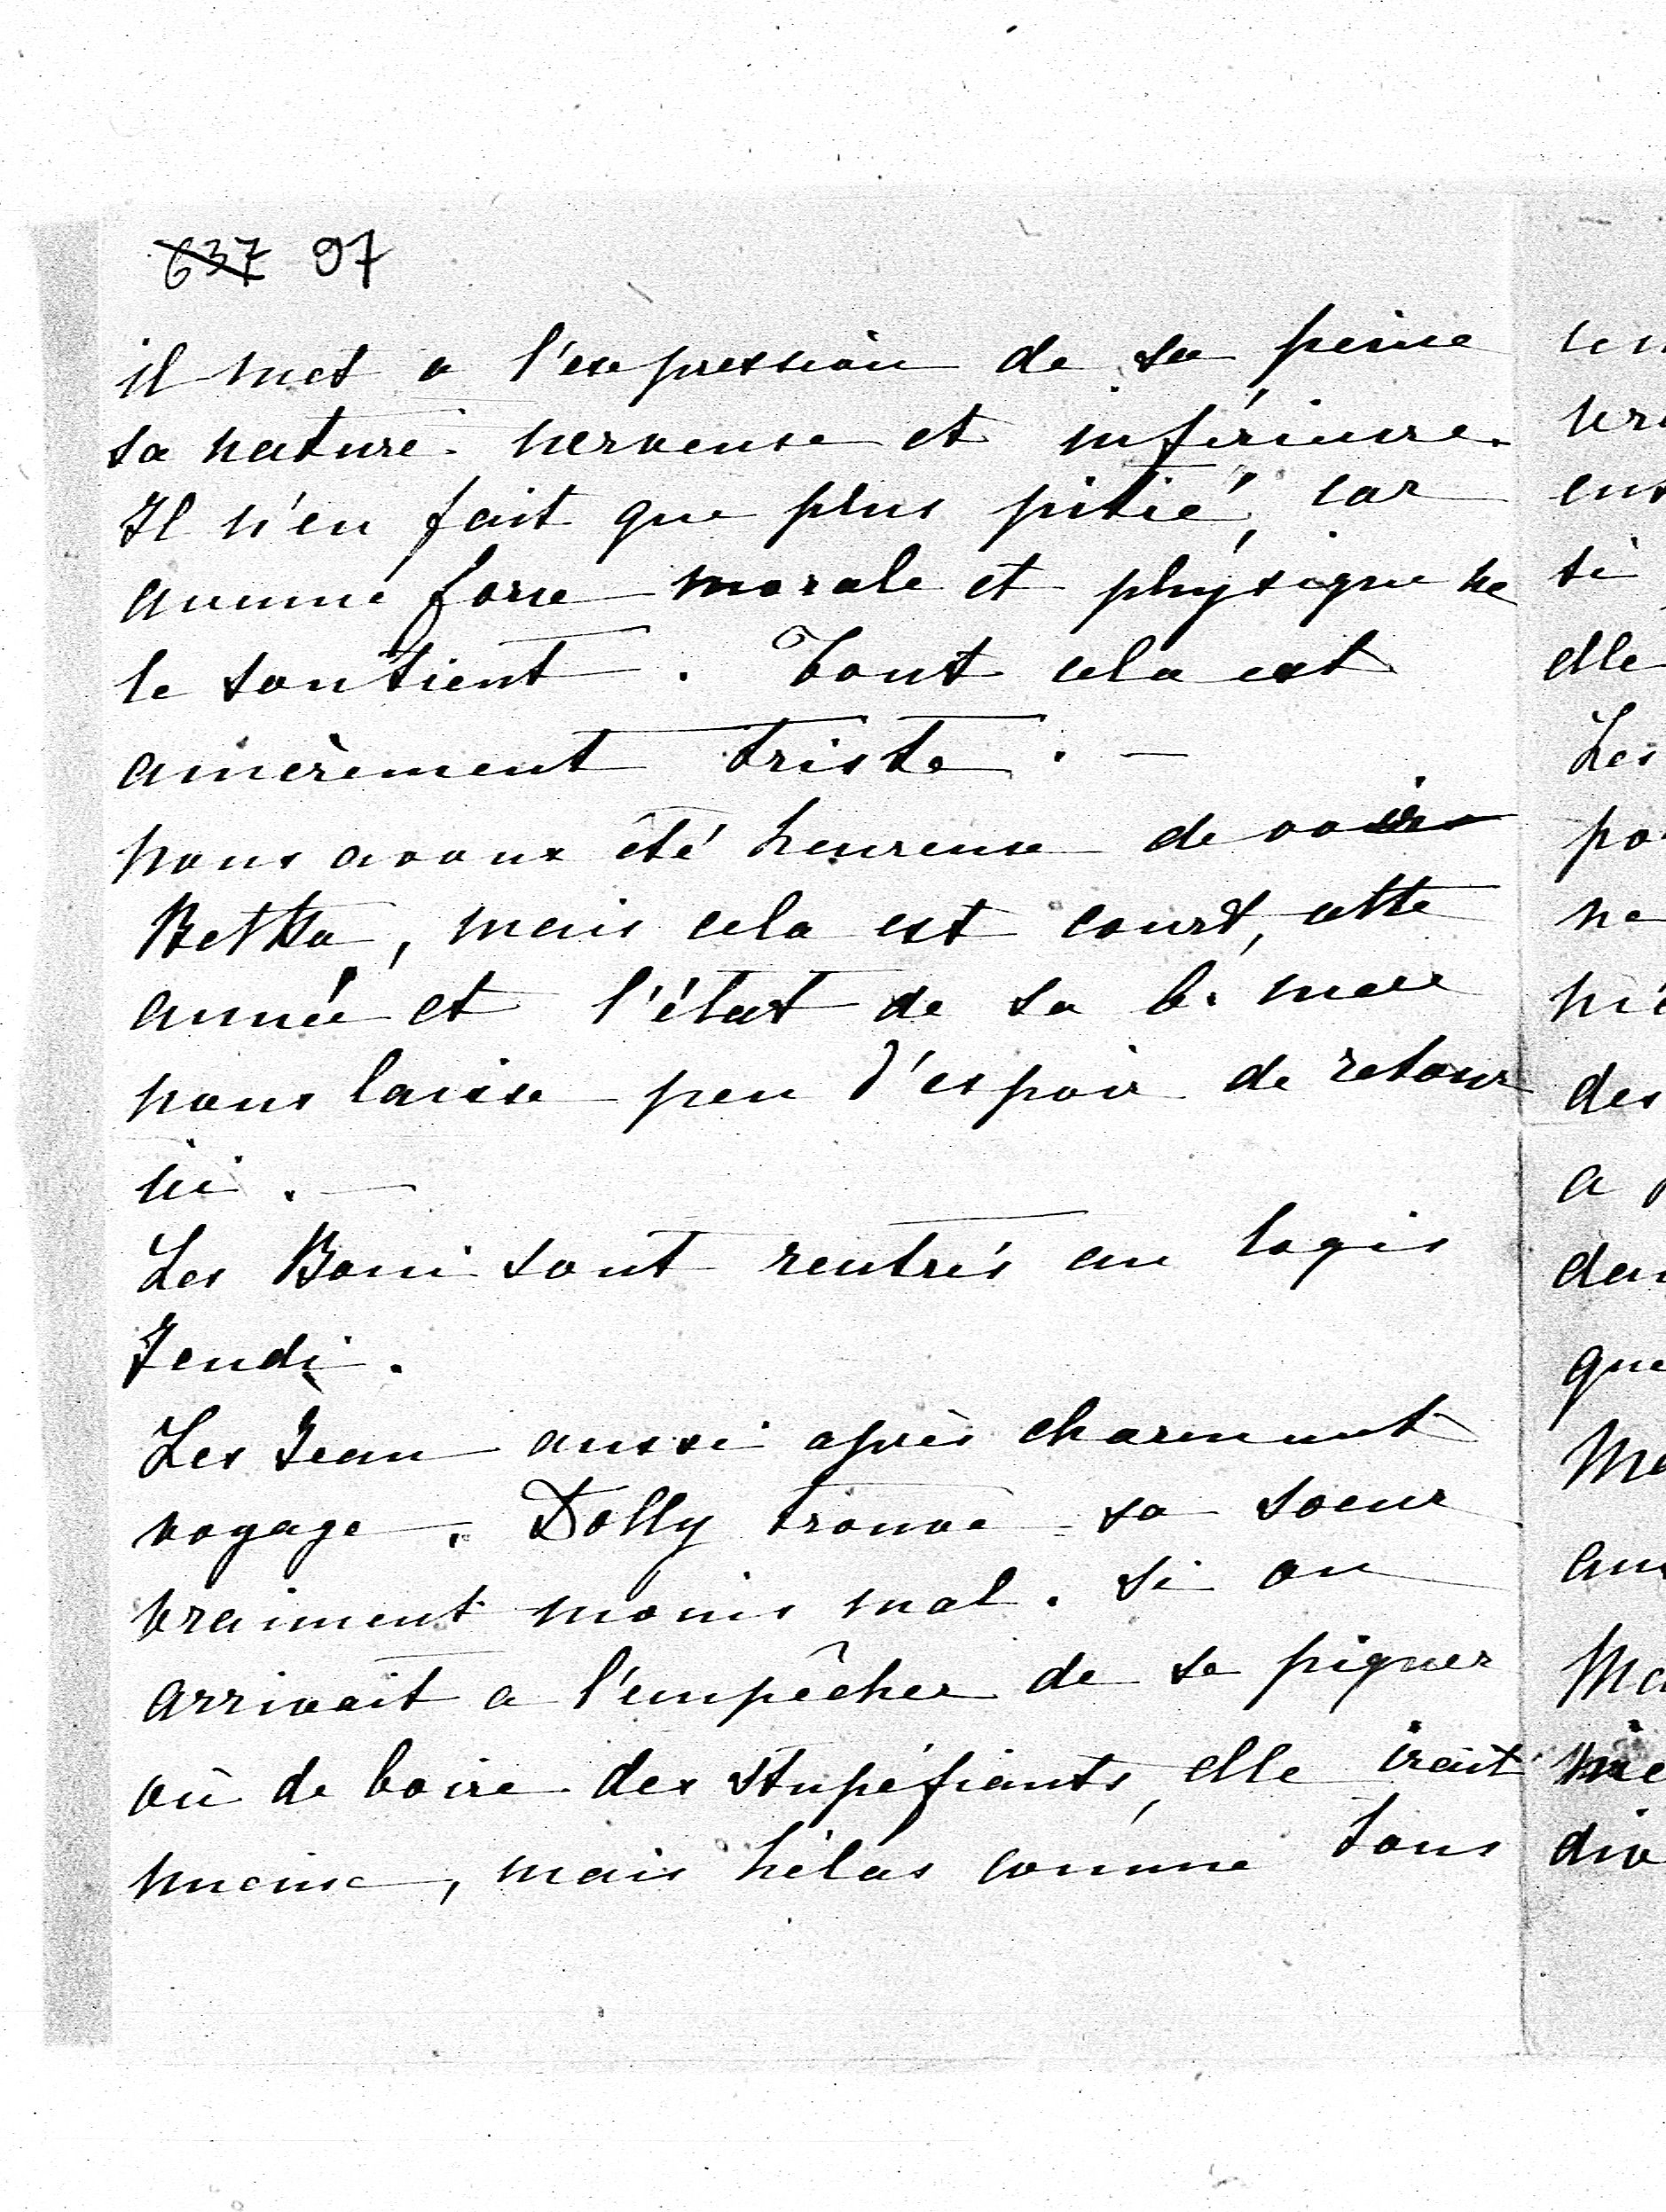 637 97
il met a l'expression de sa peine
sa nature nerveuse et inférieure.
Il n'en fait que plus pitié, car
aucune force morale et physique ne
le soutient. Tout cela est
amèrement triste. —
nous avons été heureux de voir
Betka, mais cela est court, cette
année et l'état de sa b. mère
nous laisse peu d'espoir de retour
ici. —
Les Boni sont rentrés au logis
Jeudi.
Les Jean aussi après charmant
voyage. Dolly trouve sa soeur
vraiment moins mal. Si on
arrivait a l'empêcher de se piquer
où de boire des stupéfiants, elle irait
mieux, mais hélas comme tous
elle
Les
ne
des
a
que